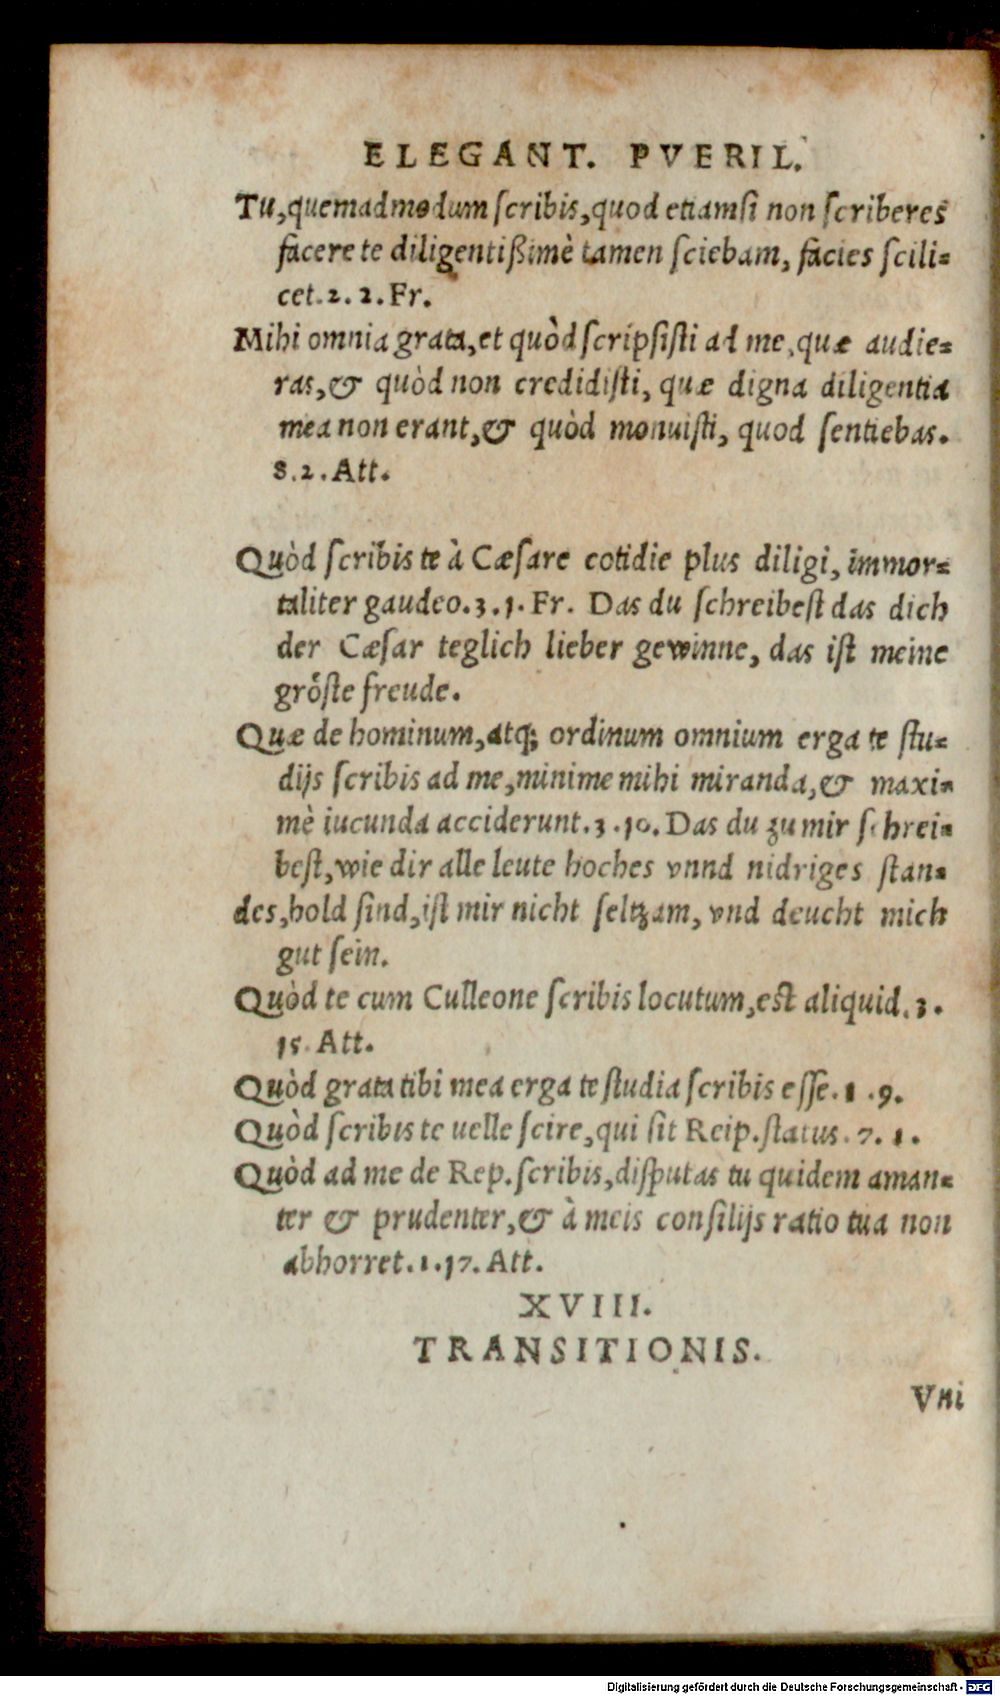 ELEGANT. PVERIL.
Tu,quemadmodum ſcribis,quod etiamſi non ſcriberes
facere te diligentißimè tamen ſciebam, facies ſcili-
cet.2.2.Fr.
Mihi omnia grata,et quòd ſcripſiſti ad me,quæ audie-
ras,& quòd non credidiſti, quæ digna diligentia
mea non erant,& quòd monuiſti, quod ſentiebas.
8.2.Att.
Quòd ſcribis te à Cæſare cotidie plus diligi, immor-
taliter gaudeo.3.1.Fr. Das du ſchreibeſt das dich
der Cæſar teglich lieber gewinne, das iſt meine
gröſte freude.
Quæ de hominum,atq; ordinum omnium erga te ſtu-
dijs ſcribis ad me,minime mihi miranda,& maxi-
mè iucunda acciderunt.3.10.Das du zu mir ſchrei-
beſt,wie dir alle leute hoches vnnd nidriges ſtan-
des,hold ſind,iſt mir nicht ſeltzam, vnd deucht mich
gut ſein.
Quòd te cum Culleone ſcribis locutum,eſt aliquid.3.
15.Att.
Quòd grata tibi mea erga te ſtudia ſcribis eſſe.1.9.
Quòd ſcribis te uelle ſcire,qui ſit Reip.ſtatus.7.1.
Quòd ad me de Rep.ſcribis,diſputas tu quidem aman-
ter & prudenter,& à meis conſilijs ratio tua non
abhorret.1.17.Att.
XVIII.
TRANSITIONIS.
Vni
Digitalisierung gefördert durch die Deutsche Forschungsgemeinschaft - DFG